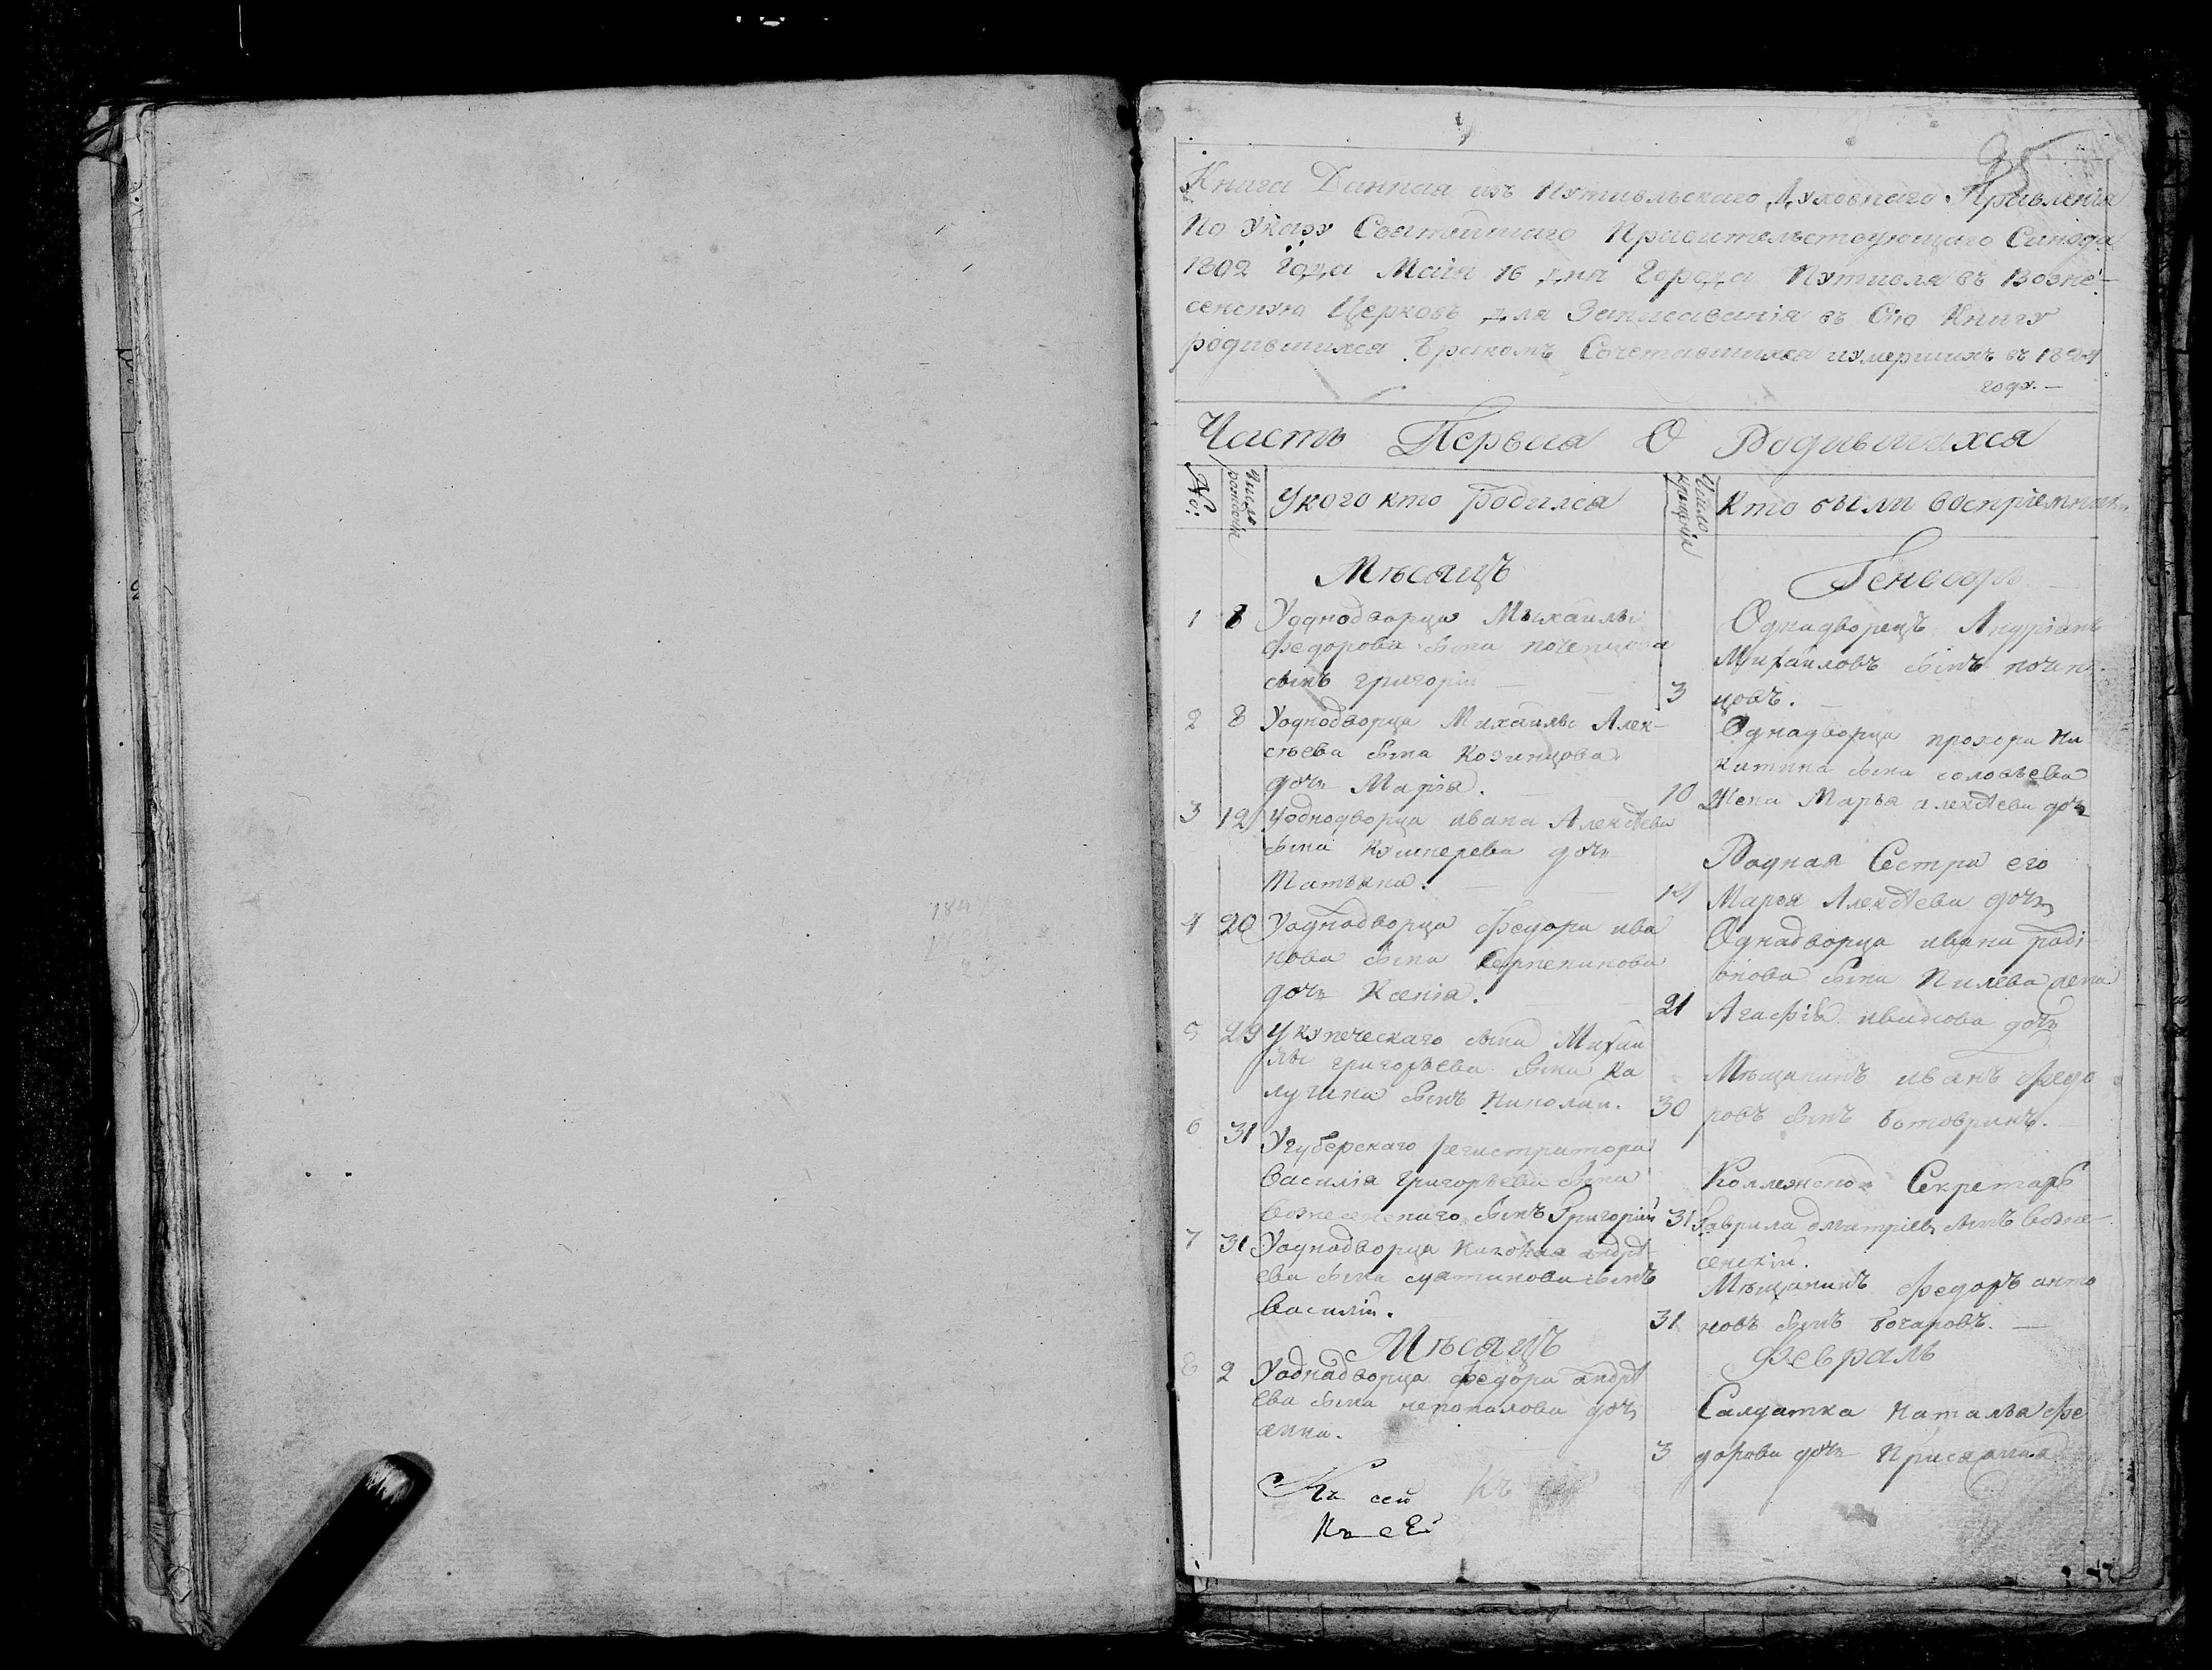 Книга Данная изъ Путивльскаго Духовнаго Правленія
По Указу Святейшаго Правительствующаго Синода
1802 Года Маія 16 дня Города Путивля въ Возне-
сенскую Церковь для Записаванія въ Сію Книгу
родившихся Бракомъ Сочетавшихся иумершихъ въ 1824
году.—
Часть Первыя О Родившихся
№:
Число рожденія
Укого кто Родился
Число крещенія
Кто были воспріемники
Мѣсяцъ
Генварь
1 8 Уоднодворца Михаилы
Федорова сына поченцова
сынъ григорій
Однадворецъ Андріанъ
Михаиловъ сынъ почен
3 цовъ.
2 8 Уоднодворца Михаилы Алек-
сѣева сына Козинцова
дочь Марія.
Однадворца прохора Ни
китина сына соловьева
10 Жена Марья алексѣева дочь
3 12 Уоднодворца ивана Алексѣева
сына кушнерева дочь
Татьяна.
Родная Сестра его
14 Марья Алексѣева дочь
4 20 Уоднадворца Федора ива
нова сына
дочь Ксенія.
Однадворца ивана раді
онова сына Пилева жена
21 Агафія иванова дочь
5 29 Укупеческаго сына Михаи
лы григорьева сына Ка
лугина сынъ николаи.
Мѣщанинъ иванъ федо
30 ровъ сынъ
6 31 Угуберскаго регистратора
Василія Григорьева сына
вознесенскаго сынъ Григорій
Коллежской Секретарь
31 Гаврила дмитріевъ сынъ возне
сенскій.
7 31 Уоднадворца Николая андрѣ
ева сына сынъ
Василій.
Мѣщанинъ Федоръ анто
31 новъ сынъ бочаровъ.
Мѣсяцъ
Февраль
8 2 Уоднадворца Федора андрѣ
ева сына дочь
анна.
Салдатка Наталья Фе
3 дорова дочь
Къ сей Къ
Къ сей